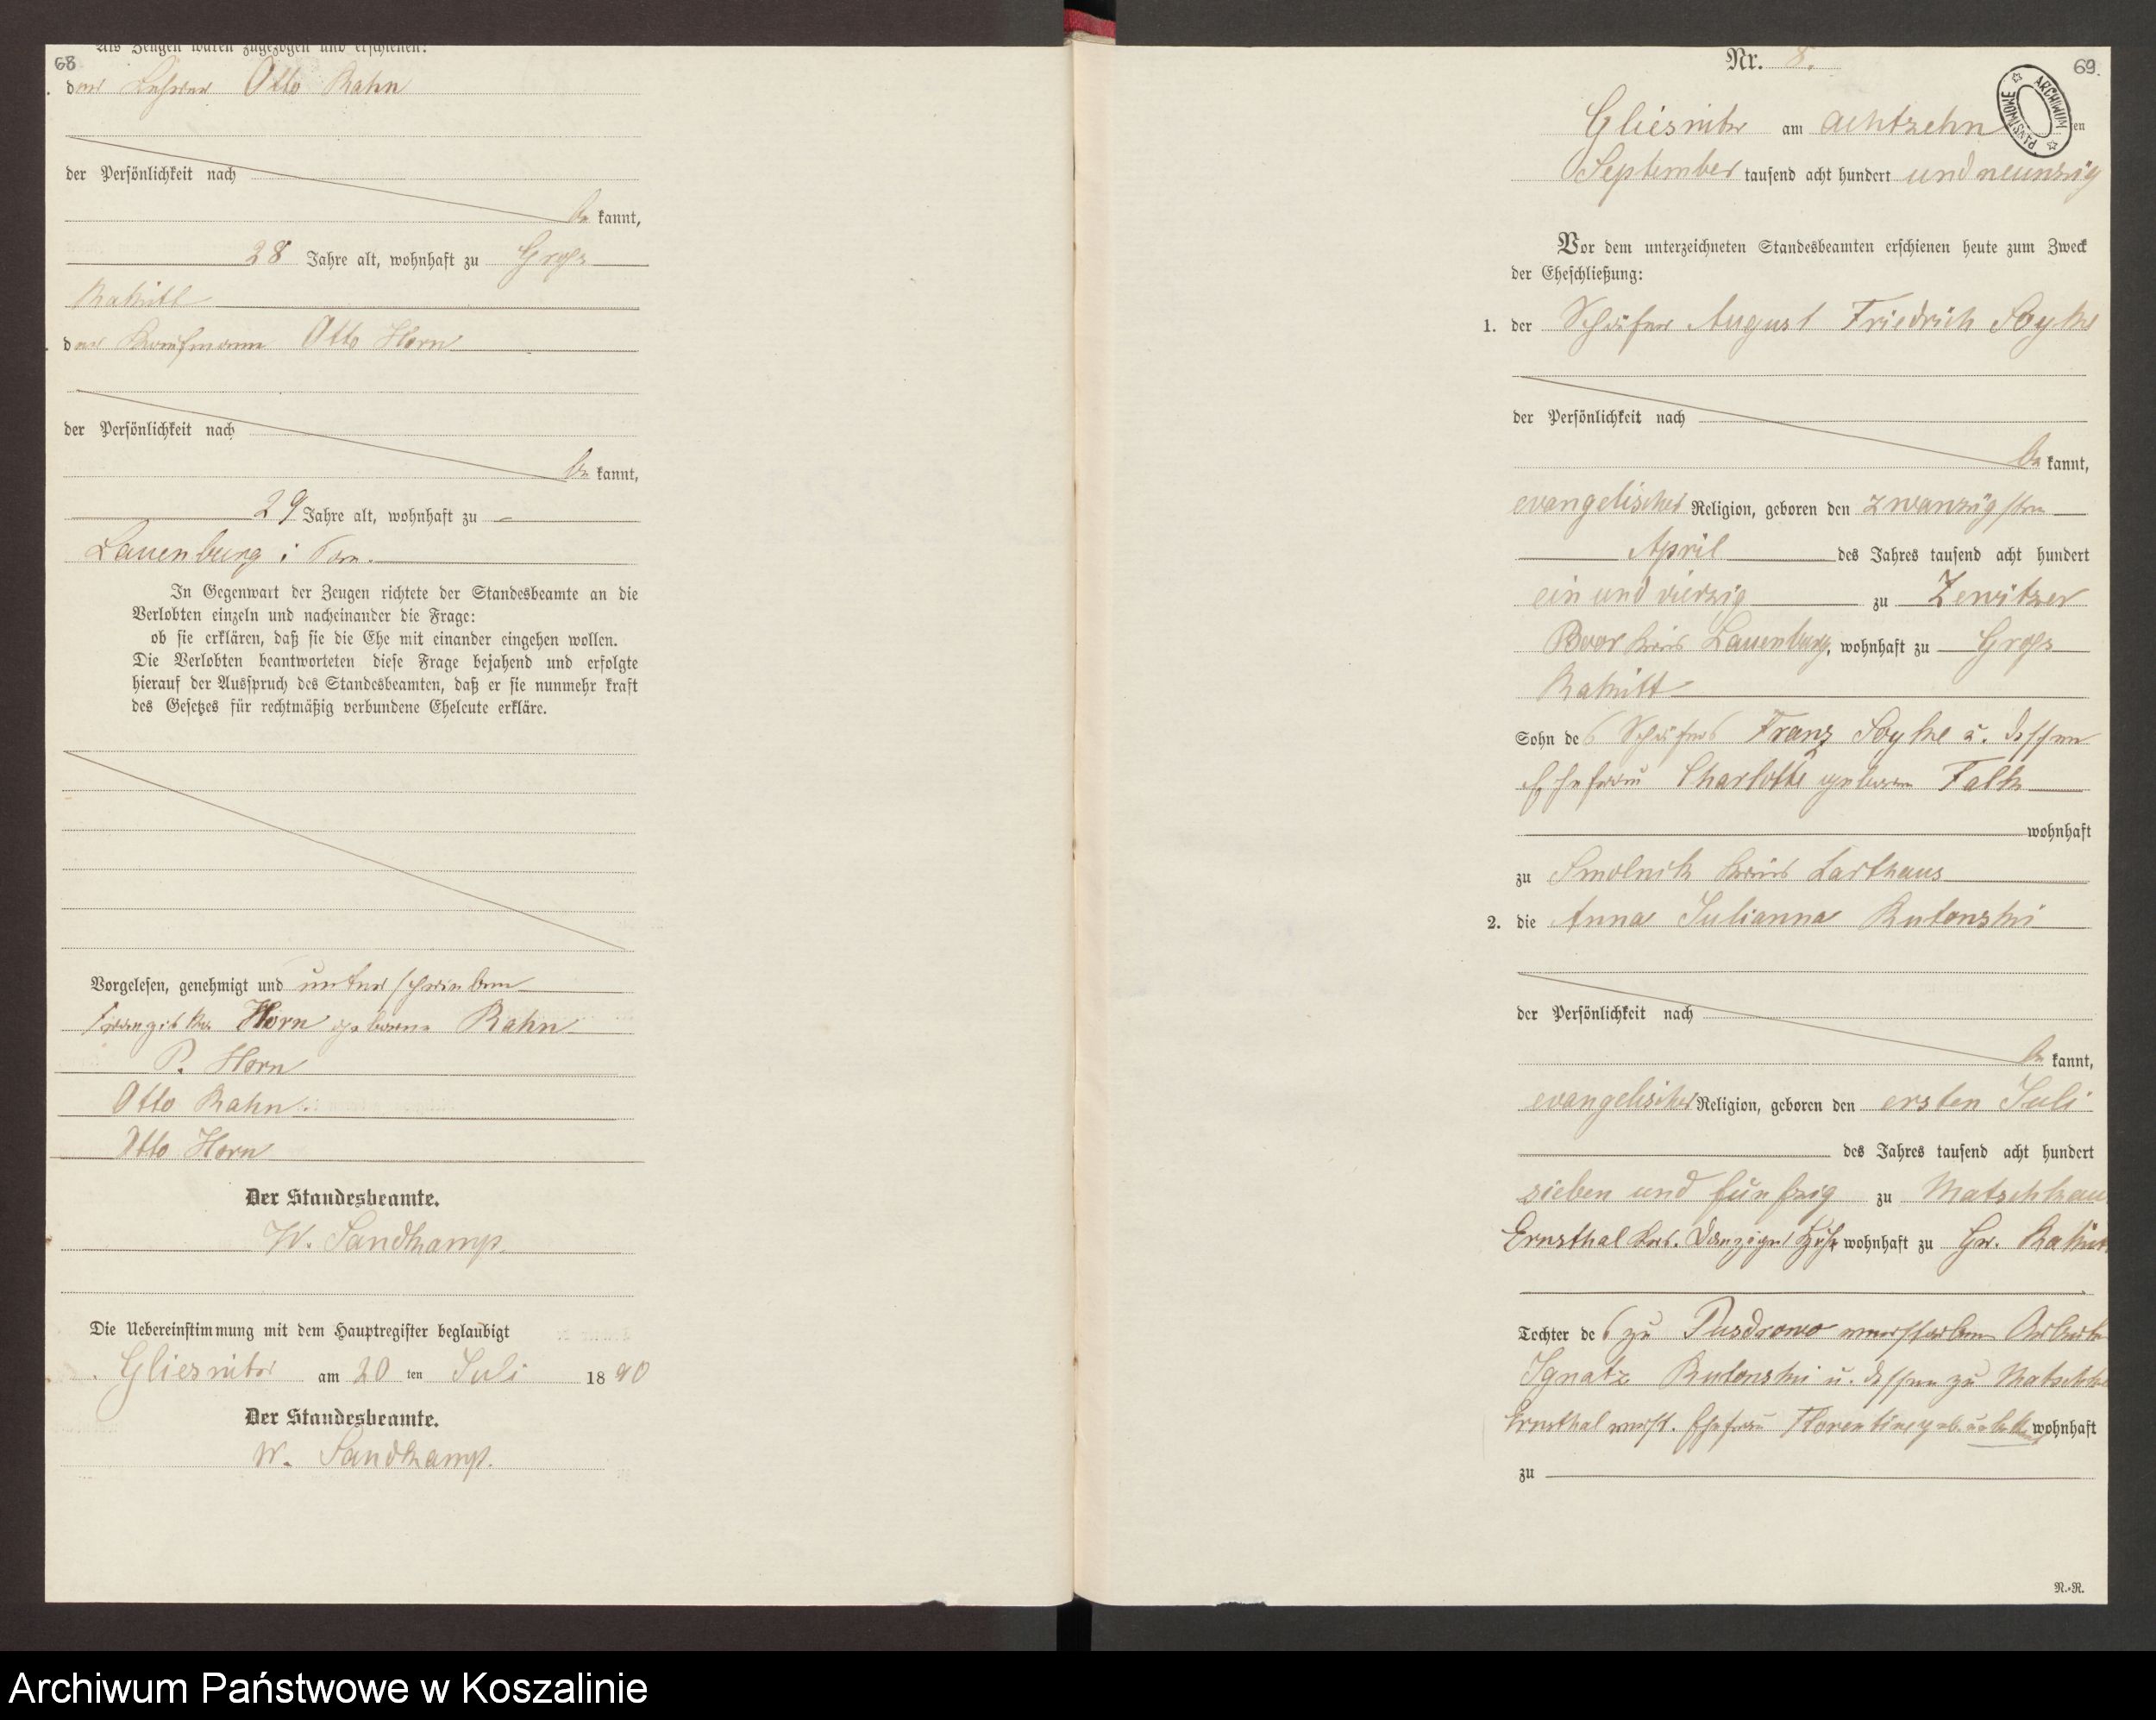 68
Als Zeugen waren zugezogen und erschienen:
der Lehrer Otto Rahn
der Persönlichkeit nach
be kannt,
28 Jahre alt, wohnhaft zu Gross
Rakitt
der Kaufmann Otto Horn
der Persönlichkeit nach
be kannt,
29 Jahre alt, wohnhaft zu
Lauenburg i Pom.
In Gegenwart der Zeugen richtete der Standesbeamte an die
Verlobten einzeln und nacheinander die Frage:
ob sie erklären, daß sie die Ehe mit einander eingehen wollen.
Die Verlobten beantworteten diese Frage bejahend und erfolgte
hierauf der Ausspruch des Standesbeamten, daß er sie nunmehr kraft
des Gesetzes für rechtmäßig verbundene Eheleute erkläre.
Vorgelesen, genehmigt und unterschrieben
Franziska Horn geborene Rahn
P. Horn
Otto Rahn.
Otto Horn
Der Standesbeamte.
W. Sandkamp.
Die Uebereinstimmung mit dem Hauptregister beglaubigt
Gliesnitz am 20 ten Juli 18 90
Der Standesbeamte.
W. Sandkamp.
Nr. 8.
69.
ARCHIWUM PAŃSTWOWE
Gliesnitz am achtzehn ten
September tausend acht hundert und neunzig
Vor dem unterzeichneten Standesbeamten erschienen heute zum Zweck
der Eheschließung:
1. der Schäfer August Friedrich Soyke
der Persönlichkeit nach
be kannt,
evangelischer Religion, geboren den zwanzigsten
April des Jahres tausend acht hundert
ein und vierzig zu Zewitzer
Boor Kreis Lauenburg, wohnhaft zu Gross
Rakitt
Sohn des Schäfers Franz Soyke u. dessen
Ehefrau Charlotte geboren Falk
wohnhaft
zu Smolnik Kreis Carthaus
2. die Anna Julianna Rutonski
der Persönlichkeit nach
be kannt,
evangelischer Religion, geboren den ersten Juli
des Jahres tausend acht hundert
sieben und fünfzig zu Matschkau
Ernsthal Krs. Danziger Höhe wohnhaft zu Gr. Rakitt
Tochter des zu Pusdrowo verstorbenen Arbeiter
Ignatz Rutonski u. dessen zu Matschkau
Ernsthal verst. Ehefrau Florentine wohnhaft
zu
N.-R.
Archiwum Państwowe w Koszalinie